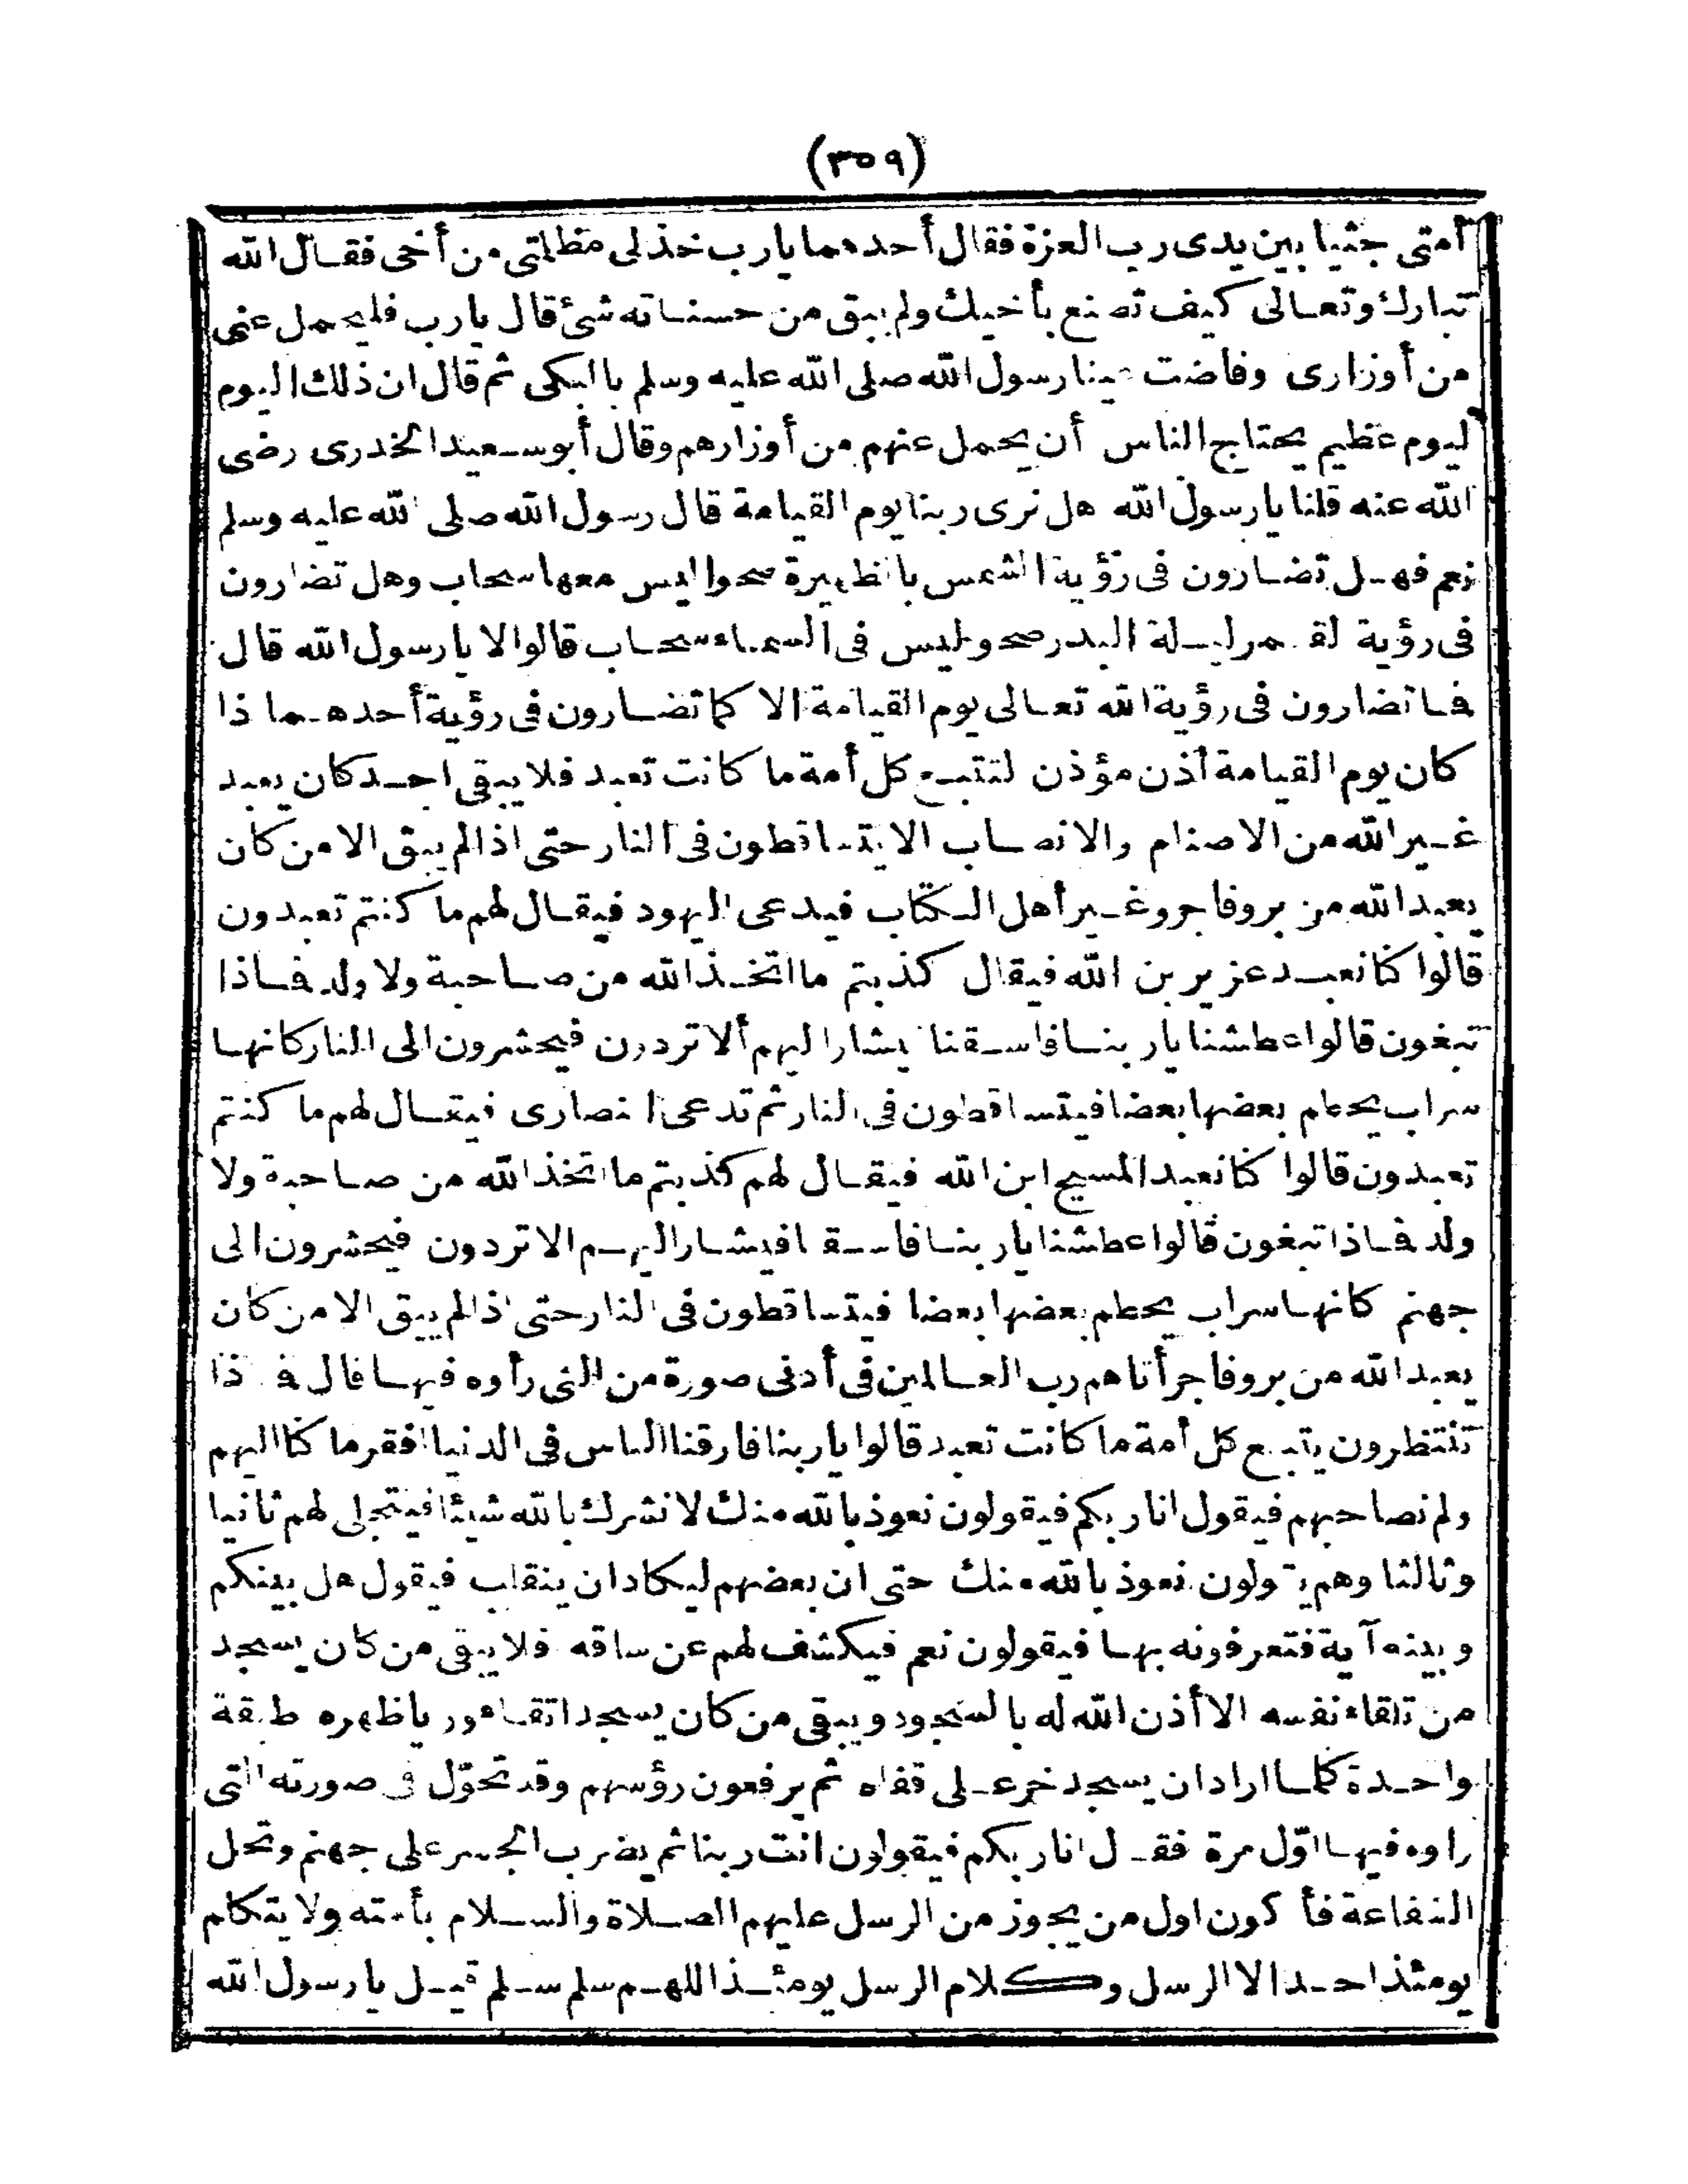 (٣٥٩)
أمتى جثيا بين يدى رب العزة فقال أحدهما يارب خذلى مظلمتى من أخى فقال الله
تبارك وتعالى كيف تصنع بأخيك ولم يبق من حسناته شئ قال يارب فليحمل عنى
من أوزارى وفاضت عينا رسول الله صلى الله عليه وسلم بالبكى ثم قال ان ذلك اليوم
ليوم عظيم يحتاج الناس أن يحمل عنهم من أوزارهم وقال أبو سعيد الخدرى رضى
الله عنه قلنا يا رسول الله هل نرى ربنا يوم القيامة قال رسول الله صلى الله عليه وسلم
نعم فهل تضارون فى رؤية الشمس بالظهيرة صحوا ليس معها سحاب وهل تضارون
فى رؤية القمر ليلة البدر صحو وليس فى السماء سحاب قالوا لا يا رسول الله قال
فما تضارون فى رؤية الله تعالى يوم القيامة الا كما تضارون فى رؤية أحدهما ذا
كان يوم القيامة أذن مؤذن لتتبع كل أمة ما كانت تعبد فلا يبقى احد كان يعبد
غير الله من الاصنام والانصاب الا يتساقطون فى النار حتى اذا لم يبق الا من كان
يعبد الله من بر وفاجر وغير أهل الكتاب فيدعى اليهود فيقال لهم ما كنتم تعبدون
قالوا كنا نعبد عزير بن الله فيقال كذبتم ما اتخذ الله من صاحبة ولا ولد فماذا
تبغون قالوا عطشنا يا ربنا فاسقنا يشار اليهم ألا تردون فيحشرون الى النار كانها
سراب يحطم بعضها بعضا فيتساقطون فى النار ثم تدعى النصارى فيقال لهم ما كنتم
تعبدون قالوا كنا نعبد المسيح ابن الله فيقال لهم كذبتم ما اتخذ الله من صاحبة ولا
ولد فماذا تبغون قالوا عطشنا يا ربنا فاسقنا فيشار اليهم الا تردون فيحشرون الى
جهنم كانها سراب يحطم بعضها بعضا فيتساقطون فى النار حتى اذا لم يبق الا من كان
يعبد الله من بر وفاجر أتاهم رب العالمين فى أدنى صورة من التى رأوه فيها قال فماذا
تنتظرون يتبع كل أمة ما كانت تعبد قالوا يا ربنا فارقنا الناس فى الدنيا افقر ما كنا اليهم
ولم نصاحبهم فيقول انا ربكم فيقولون نعوذ بالله منك لا نشرك بالله شيئا فيتجلى لهم ثانيا
وثالثا وهم يقولون نعوذ بالله منك حتى ان بعضهم ليكاد ان ينقلب فيقول هل بينكم
وبينه آية فتعرفونه بها فيقولون نعم فيكشف لهم عن ساقه فلا يبقى من كان يسجد
من تلقاء نفسه الا أذن الله له بالسجود ويبقى من كان يسجد اتقاء ورياء ظهره طبقة
واحدة كلما اراد ان يسجد خر على قفاه ثم يرفعون رؤسهم وقد تحوّل فى صورته التى
راوه فيها اوّل مرة فقال انا ربكم فيقولون انت ربنا ثم يضرب الجسر على جهنم وتحل
الشفاعة فأكون اول من يجوز من الرسل عليهم الصلاة والسلام بأمته ولا يتكلم
يومئذ احد الا الرسل وكلام الرسل يومئذ اللهم سلم سلم قيل يا رسول الله